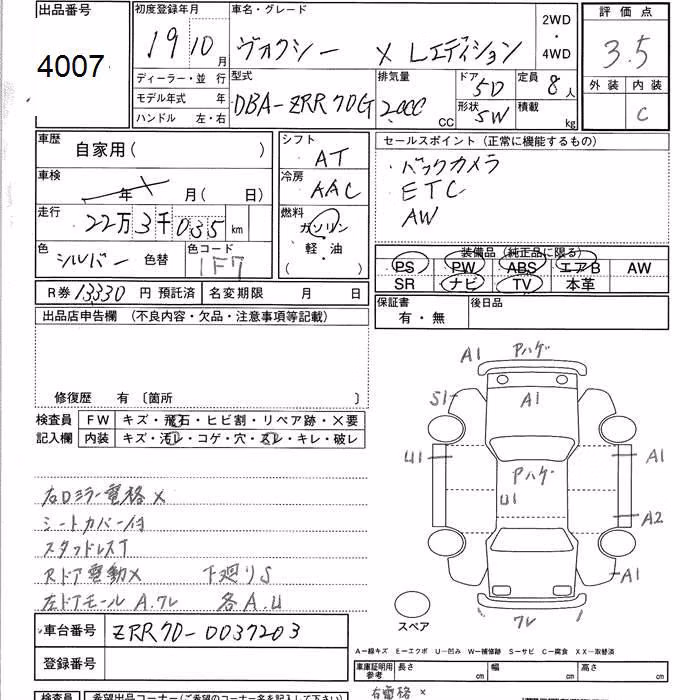 出品番号
4007
初度登録年月
19 10 月
車名・グレード
ヴォクシー X Lエディション
2WD
・
4WD
評価点
3.5
外装 内装
C
ディーラー・並行
モデル年式 年
ハンドル 左・右
型式
DBA-ZRR70G
排気量
2000 CC
ドア
5D
形状
SW
定員
8人
積載
kg
車歴
自家用( )
車検
年 月( 日)
走行
22万3千035 km
色
シルバー 色替
色コード
1F7
シフト
AT
冷房
AAC
燃料
ガソリン
軽・油
( )
セールスポイント(正常に機能するもの)
バックカメラ
ETC
AW
装備品(純正品に限る)
PS PW ABS エアB AW
SR ナビ TV 本革
R券 13330 円 預託済 名変期限 月 日
保証書
有・無
後日品
出品店申告欄 (不良内容・欠品・注意事項等記載)
修復歴 有 〔箇所 〕
検査員
記入欄
FW キズ・飛石・ヒビ割・リペア跡・×要
内装 キズ・汚レ・コゲ・穴・スレ・キレ・破レ
右Dミラー電格 ×
シートカバー付
スタッドレスT
Rドア電動× 下廻りS
左ドアモール A.ワレ 各A.U
A1 Pハゲ
S1 A1
U1 A1
Pハゲ
U1
A2
A1
ワレ
スペア
車台番号 ZRR70-0037203
登録番号
A―線キズ E―エクボ U―凹み W―補修跡 S―サビ C―腐食 XX―取替済
車庫証明用
参考
長さ cm 幅 cm 高さ cm
検査員 希望出品コーナー(ご希望のコーナー名を記入して下さい)
右電格 ×